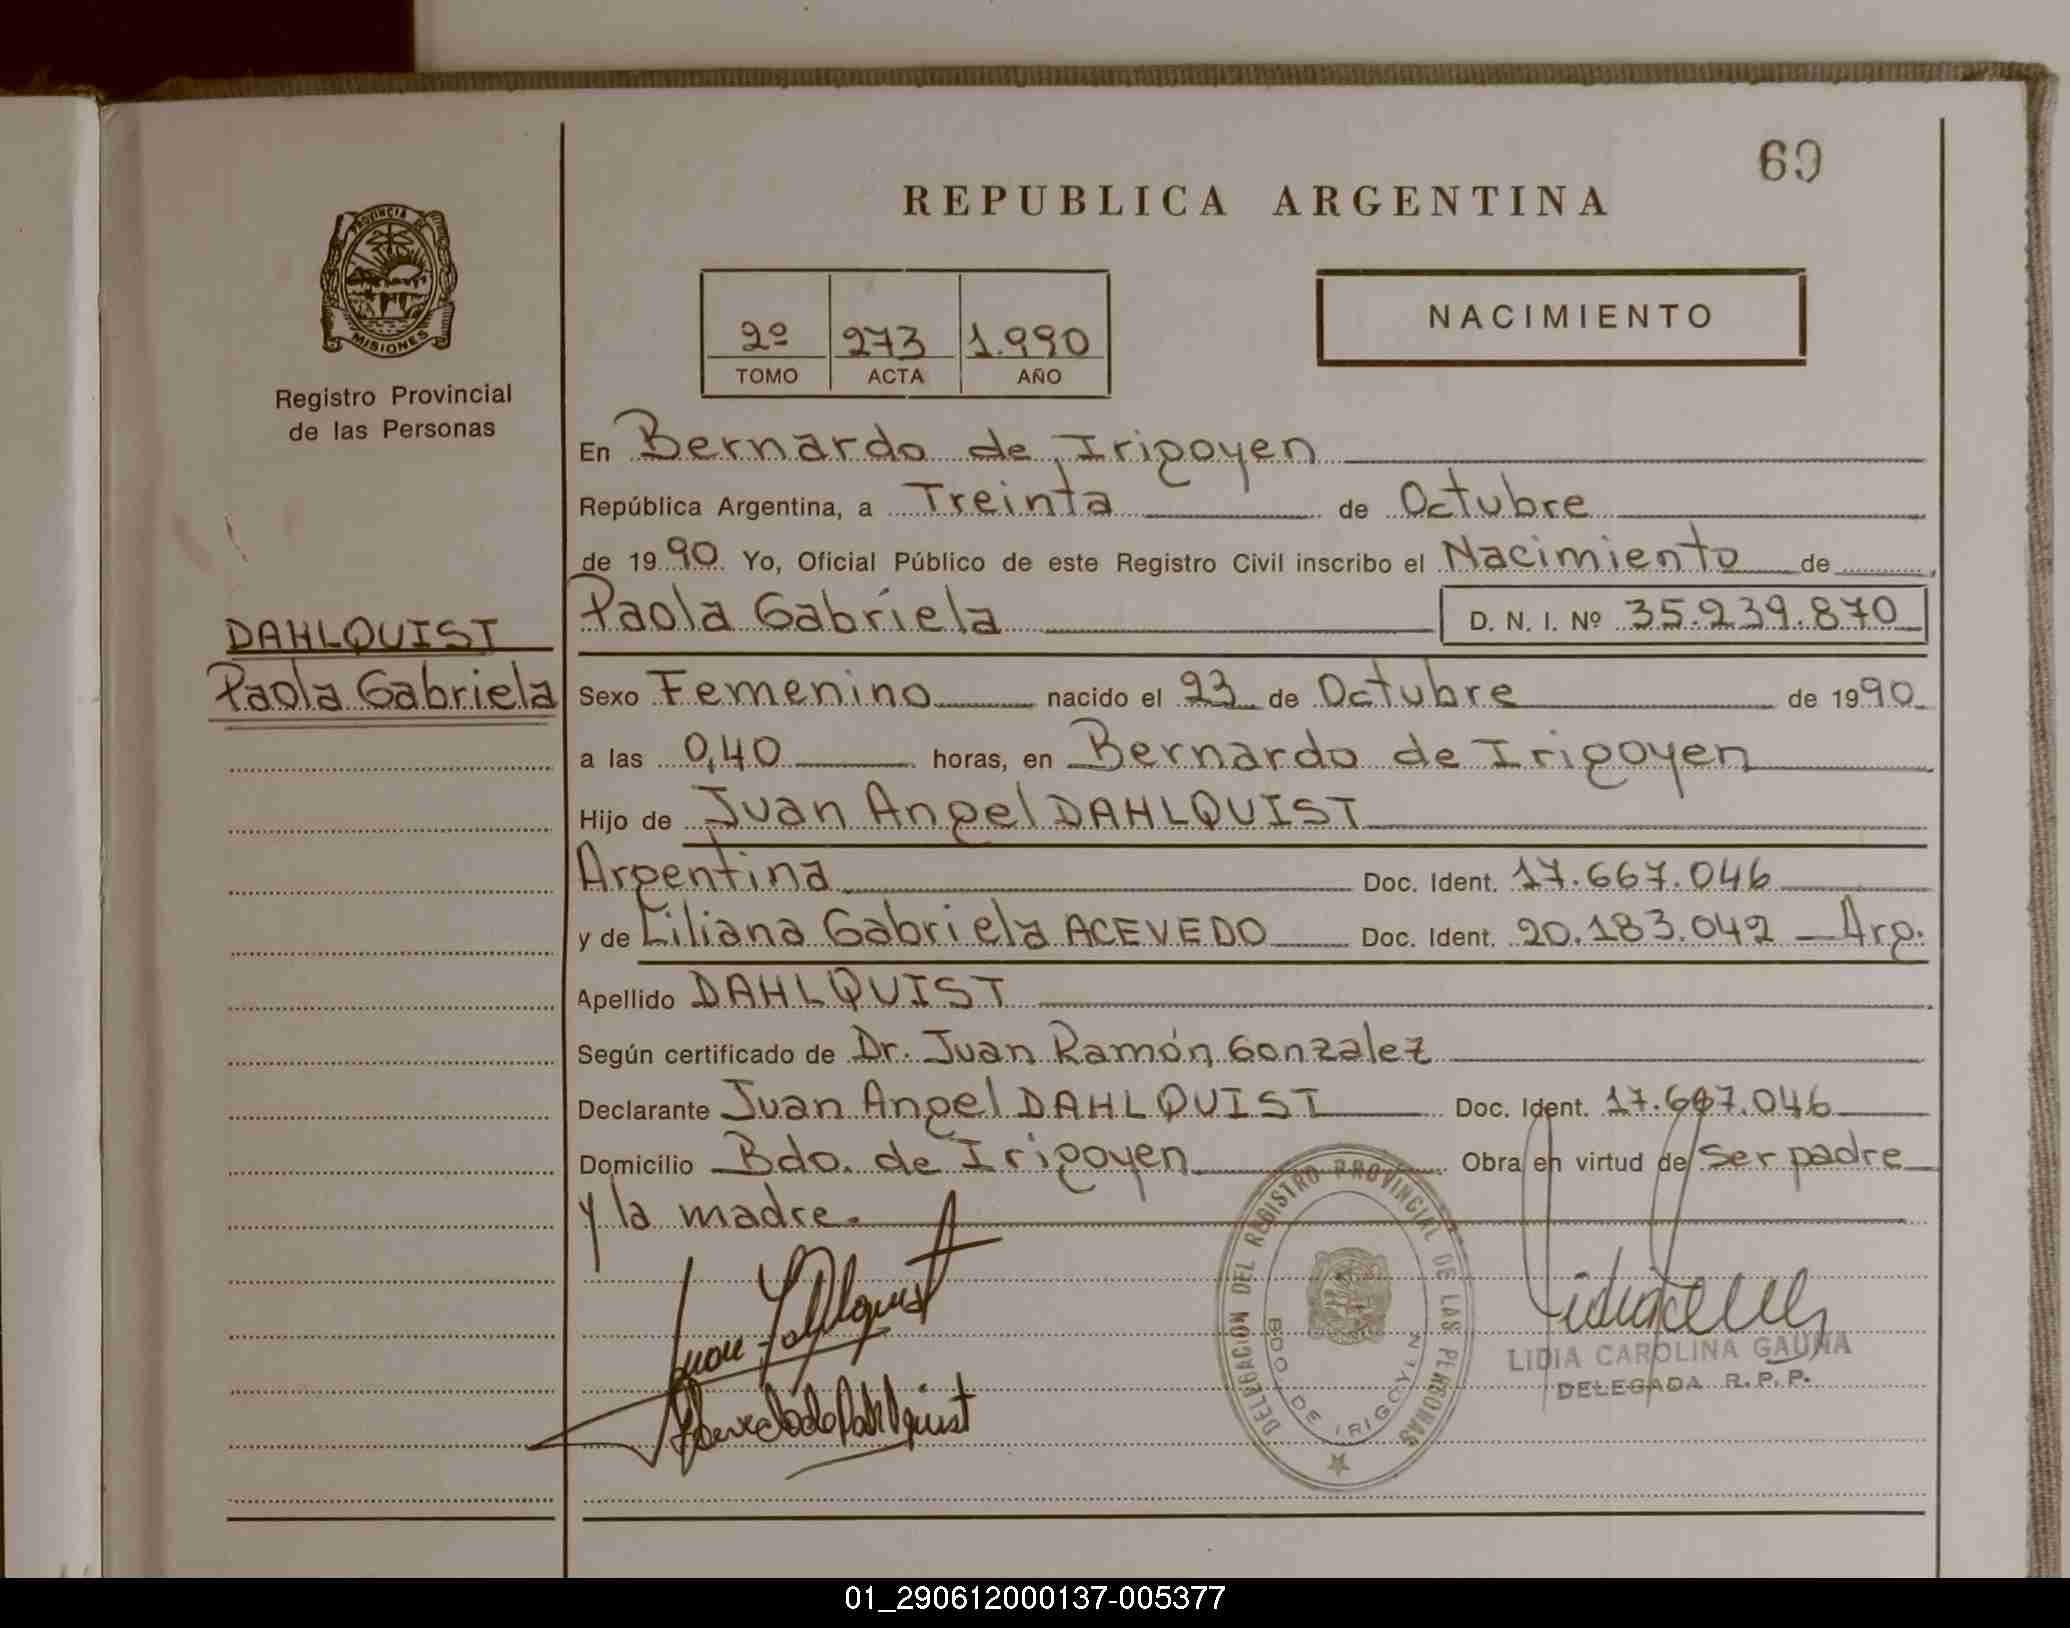 69
REPUBLICA ARGENTINA
PROVINCIA DE
MISIONES
Registro Provincial
de las Personas
NACIMIENTO
2º 273 1.990
TOMO ACTA AÑO
En Bernardo de Irigoyen
República Argentina, a Treinta de Octubre
de 1990 Yo, Oficial Público de este Registro Civil inscribo el Nacimiento de
Paola Gabriela D. N. I. Nº 35.239.870
DAHLQUIST
Paola Gabriela
Sexo Femenino nacido el 23 de Octubre de 1990
a las 0,40 horas, en Bernardo de Irigoyen
Hijo de Juan Angel DAHLQUIST
Argentina Doc. Ident. 17.667.046
y de Liliana Gabriela ACEVEDO Doc. Ident. 20.183.042 - Arg.
Apellido DAHLQUIST
Según certificado de Dr. Juan Ramón Gonzalez
Declarante Juan Angel DAHLQUIST Doc. Ident. 17.667.046
Domicilio Bdo. de Irigoyen Obra en virtud de ser padre
y la madre.
Juan Dahlquist
de Dahlquist
DELEGACION DEL REGISTRO PROVINCIAL DE LAS PERSONAS
BDO. DE IRIGOYEN
LIDIA CAROLINA GAUNA
DELEGADA R.P.P.
01_290612000137-005377